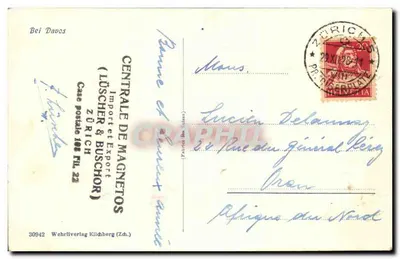 Bei Davos
Bonne et heureuse année
CENTRALE DE MAGNETOS
Import et Export
(LÜSCHER & BUSCHOR)
ZÜRICH
Case postale 198 Fil. 22
Mons.
Lucien Delaunay
Rue du Général
Oran
Afrique du Nord
ZÜRICH
20942 Wehrliverlag Kilchberg (Zch.)